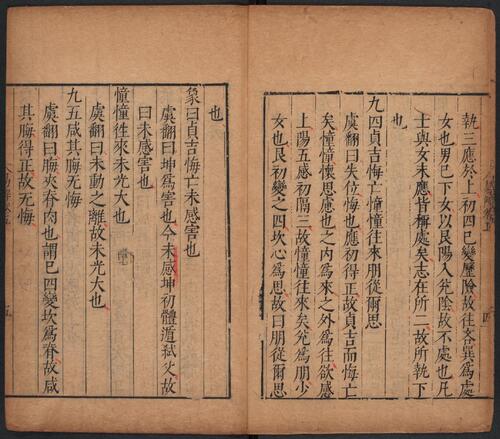 執三應於上初四已變歷險故往吝巽爲處
女也男已下女以艮陽入兌陰故不處也凡
士與女未應皆稱處矣志在所二故所執下
也
九四貞吉悔亡憧憧往來朋從爾思
虞翻曰失位悔也應初得正故貞吉而悔亡
矣憧憧懷思慮也之内爲來之外爲往欲感
上隔五感初隔三故憧憧往來矣兌爲朋少
女也艮初變之四坎心爲思故曰朋從爾思
也
象曰貞吉悔亡未感害也
虞翻曰坤爲害也今未感坤初體遁弑父故
曰未感害也
憧憧往來未光大也
虞翻曰未動之離故未光大也
九五咸其脢无悔
虞翻曰脢夾脊肉也謂已四變坎爲脊故咸
其脢得正故无悔
五